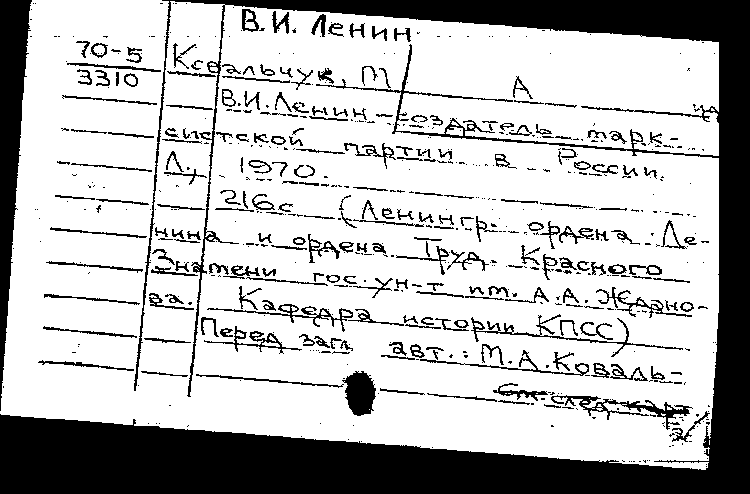 В.И. Ленин.
70-5
3310
Ковальчук, М А
В.И.Ленин - создатель марк-
систской партии в России.
Л., 1970.
216с (Ленингр. ордена Ле-
нина и ордена Труд. Красного
Знамени гос. ун-т им. А.А. Ждано-
ва. Кафедра истории КПСС)
Перед загл. авт.: М.А. Коваль-
См. след. карт.
2